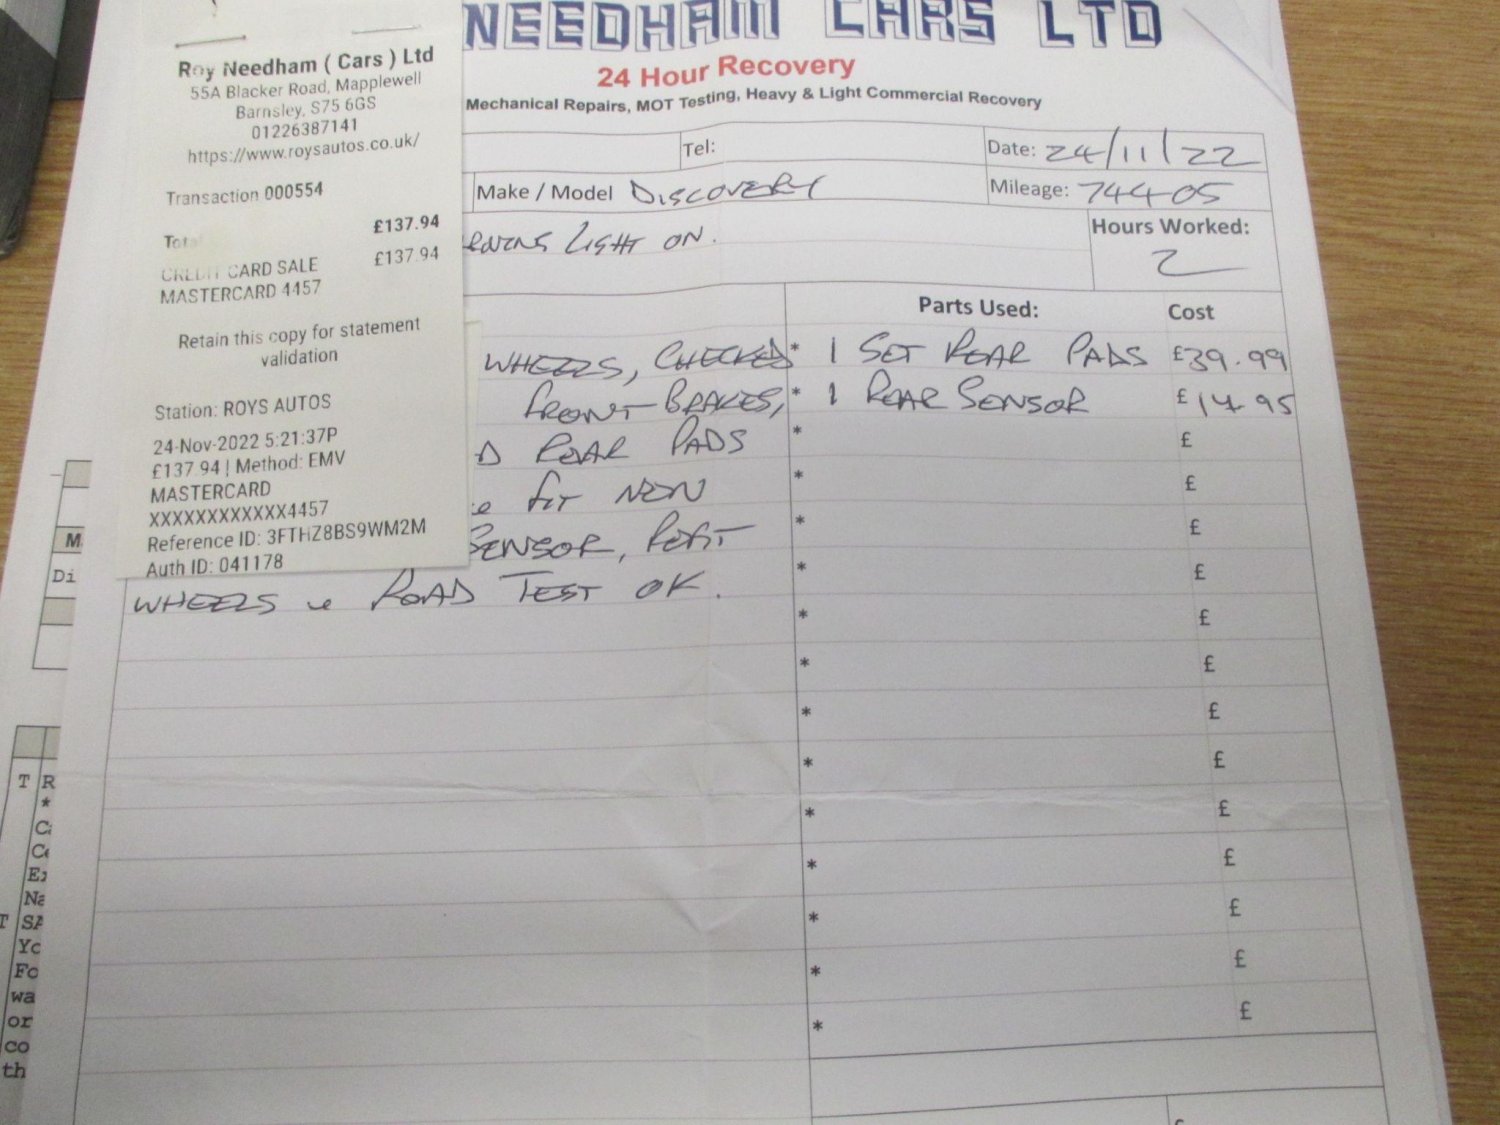 Roy Needham ( Cars ) Ltd
55A Blacker Road, Mapplewell
Barnsley, S75 6GS
01226387141
https://www.roysautos.co.uk/
Transaction 000554
Total £137.94
CREDIT CARD SALE £137.94
MASTERCARD 4457
Retain this copy for statement
validation
Station: ROYS AUTOS
24-Nov-2022 5:21:37P
£137.94 | Method: EMV
MASTERCARD
XXXXXXXXXXXX4457
Reference ID: 3FTHZ8BS9WM2M
Auth ID: 041178
NEEDHAM CARS LTD
24 Hour Recovery
Mechanical Repairs, MOT Testing, Heavy & Light Commercial Recovery
Tel:
Date: 24/11/22
Make / Model DISCOVERY
Mileage: 74405
LIGHT ON.
Hours Worked:
2
Parts Used: Cost
WHEELS, CHECKED
FRONT BRAKES,
D REAR PADS
& FIT NEW
SENSOR, REFIT
WHEELS & ROAD TEST OK.
* 1 SET REAR PADS £39.99
* 1 REAR SENSOR £14.95
* £
* £
* £
* £
* £
* £
* £
* £
* £
* £
* £
* £
* £
M
Di
T R
*
Ca
Ce
Ex
Na
T SA
Yo
Fo
wa
or
co
th
£